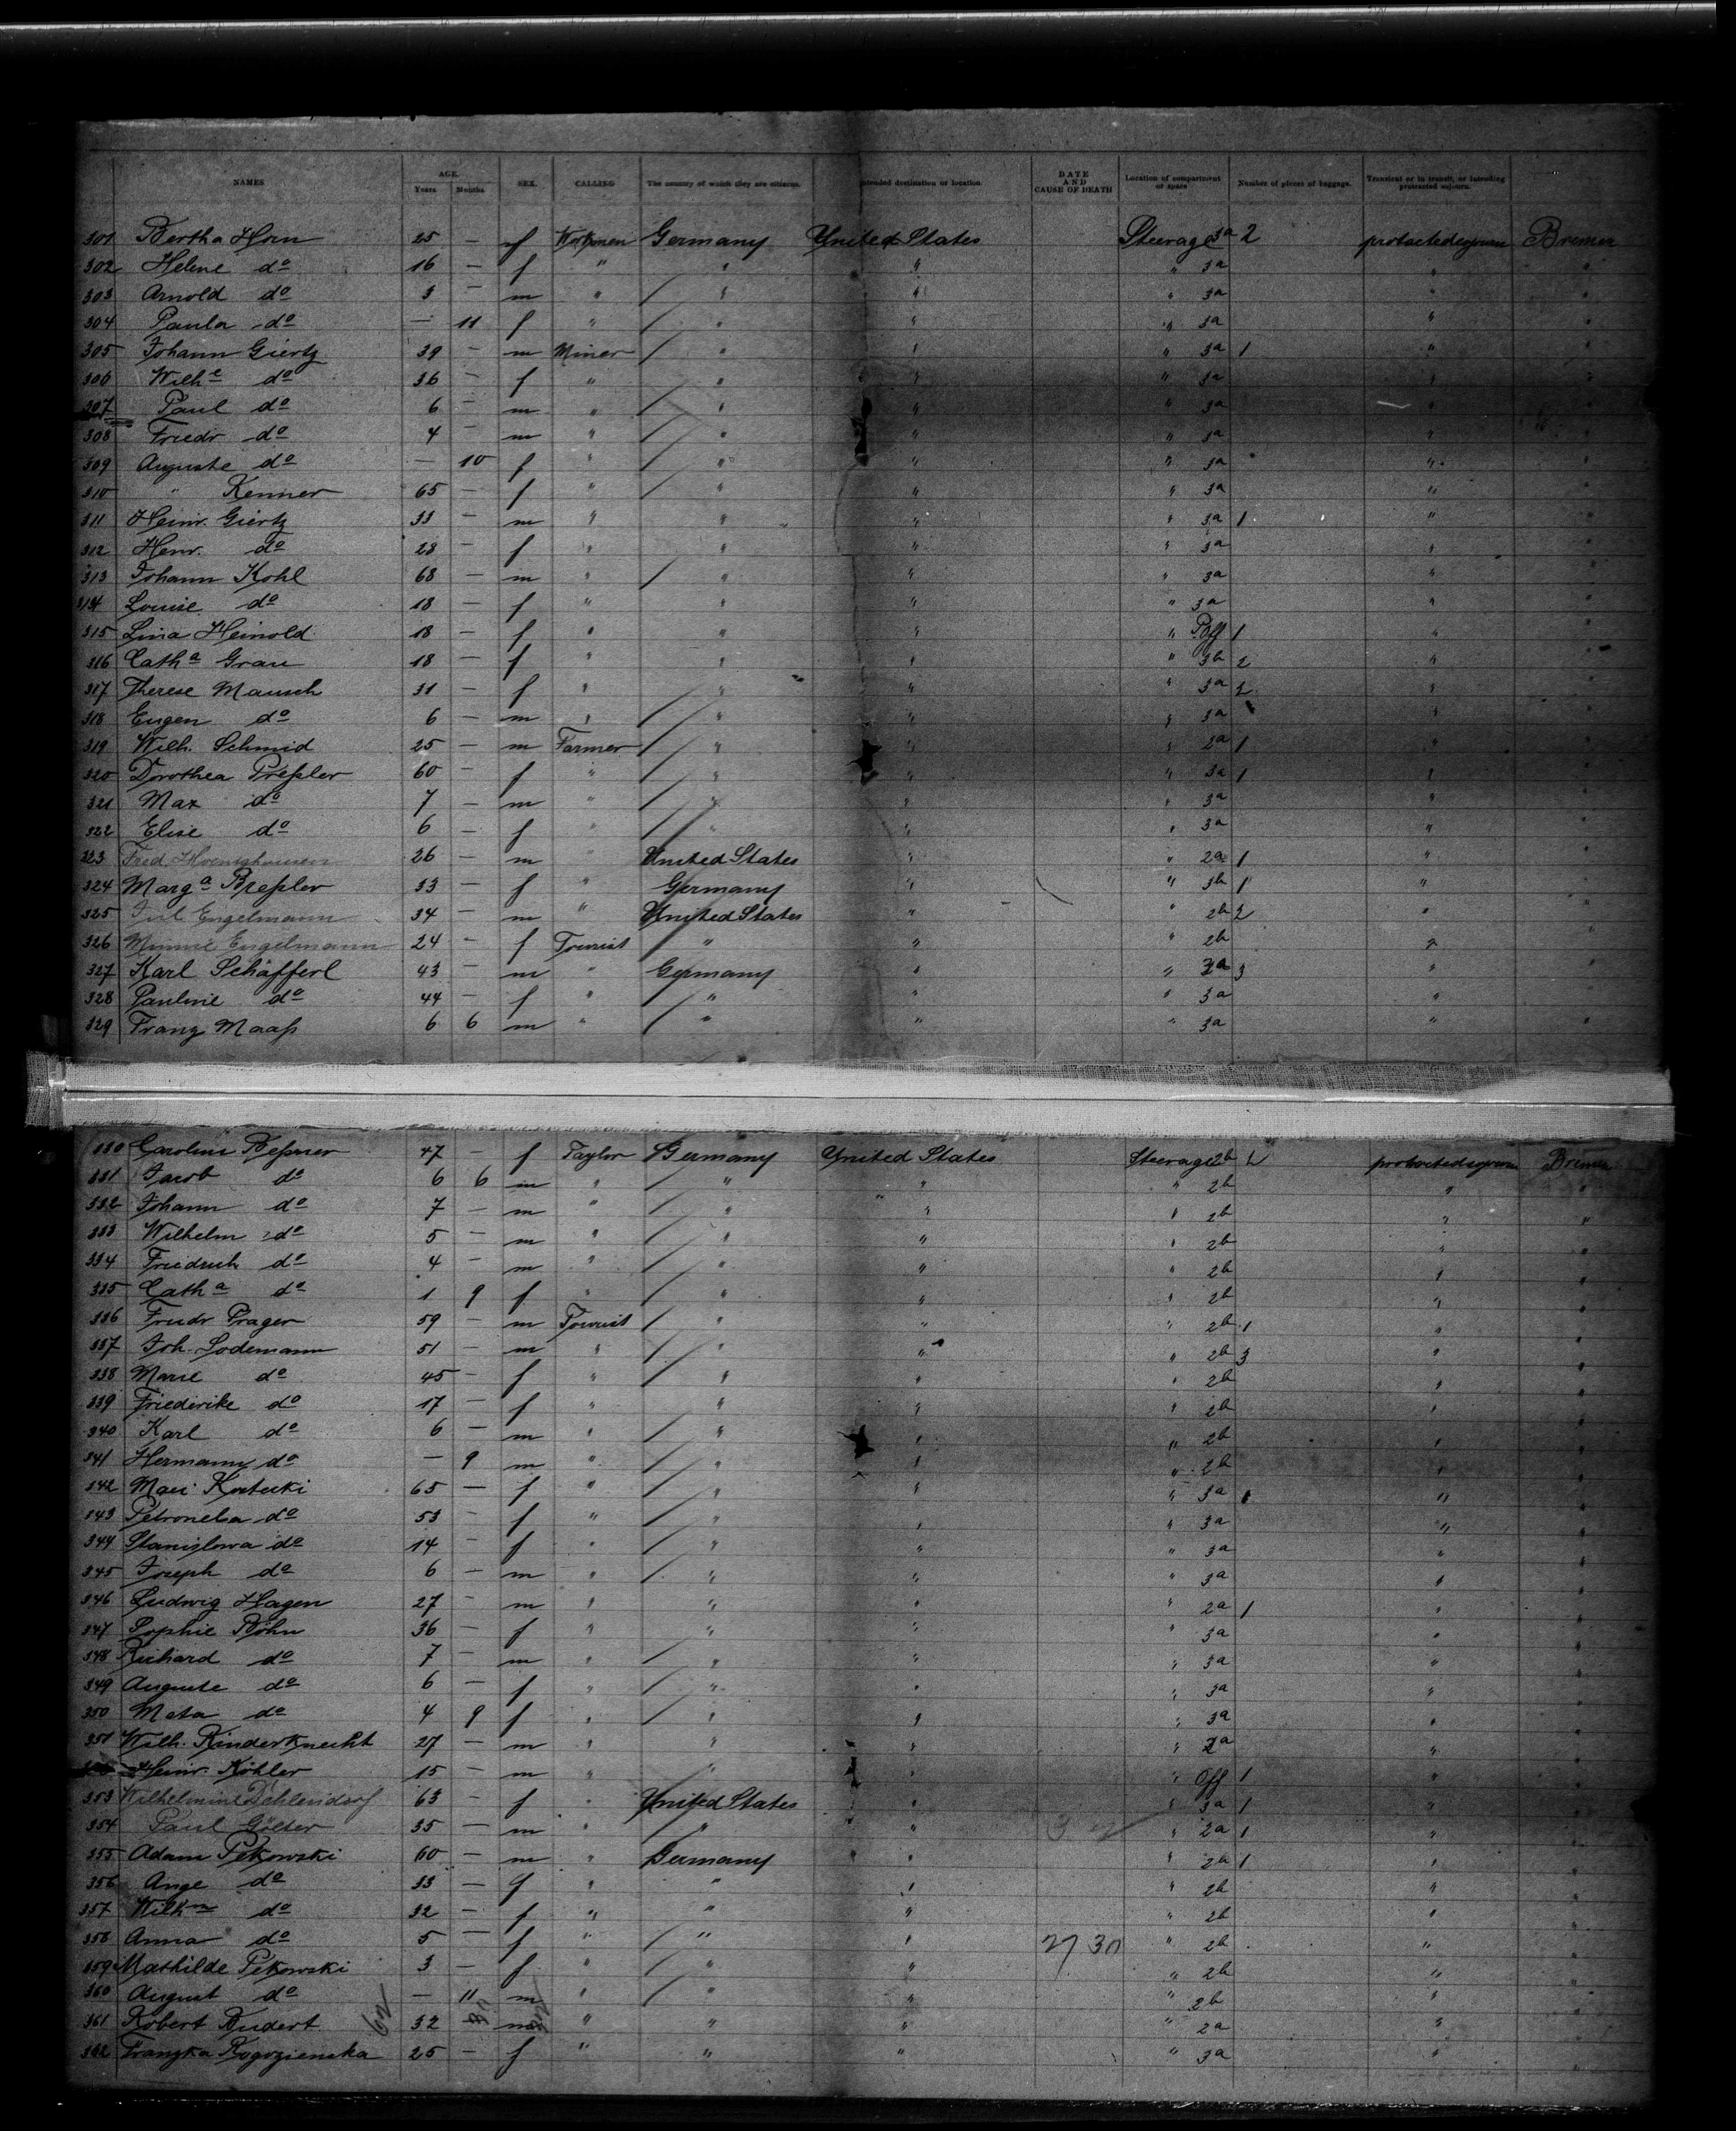 NAMES AGE. Years Months SEX. CALLING The country of which they are citizens. Intended destination or location. DATE AND CAUSE OF DEATH Location of compartment or space Number of pieces of baggage. Transient or in transit, or intending protracted sojourn.
301 Bertha Horn 25 — f Germany United States Steerage 3a 2 Bremen
302 Helene do 16 — f " " " " 3a " "
303 Arnold do 3 — m " " " " 3a " "
304 Paula do — 11 f " " " " 3a " "
305 Johann Giertz 39 — m Miner " " " 3a 1 " "
306 Wilhe do 36 — f " " " " 3a " "
307 Paul do 6 — m " " " " 3a " "
308 Friedr do 4 — m " " " " 3a " "
309 Auguste do — 10 f " " " " 3a " "
310 " Kenner 65 — f " " " " 3a " "
311 Heinr. Giertz 33 — m " " " " 3a 1 " "
312 Henr. do 28 — f " " " " 3a " "
313 Johann Kohl 68 — m " " " " 3a " "
314 Louise do 18 — f " " " " 3a " "
315 Lina Heinold 18 — f " " " " 1 " "
316 Catha Grau 18 — f " " " " 3b 2 " "
317 Therese Mausch 31 — f " " " " 3a 2 " "
318 Eugen do 6 — m " " " " 3a " "
319 Wilh. Schmid 25 — m Farmer " " " 2a 1 " "
320 Dorothea Preßler 60 — f " " " " 3a 1 " "
321 Max do 7 — m " " " " 3a " "
322 Elise do 6 — f " " " " 3a " "
323 Fred 26 — m " United States " " 2a 1 " "
324 Marga Breßler 33 — f " Germany " " 3b 1 " "
325 Jul. Engelmann 34 — m " United States " " 2b 2 " "
326 Minnie Engelmann 24 — f Tourist " " " 2b " "
327 Karl Schäfferl 43 — m " Germany " " 3a 3 " "
328 Pauline do 44 — f " " " " 3a " "
329 Franz Maaß 6 6 m " " " " 3a " "
330 Caroline Beßner 47 — f Taylor Germany United States Steerage 2b Bremen
331 Jacob do 6 6 m " " " " 2b " "
332 Johann do 7 — m " " " " 2b " "
333 Wilhelm do 5 — m " " " " 2b " "
334 Friedrich do 4 — m " " " " 2b " "
335 Catha do 1 9 f " " " " 2b " "
336 Friedr Prager 59 — m Tourist " " " 2b 1 " "
337 Joh. Sodemann 51 — m " " " " 2b 3 " "
338 Marie do 45 — f " " " " 2b " "
339 Friederike do 17 — f " " " " 2b " "
340 Karl do 6 — m " " " " 2b " "
341 Hermann do — 9 m " " " " 2b " "
342 65 — f " " " " 3a 1 " "
343 Petronela do 53 — f " " " " 3a " "
344 Stanislowa do 14 — f " " " " 3a " "
345 Joseph do 6 — m " " " " 3a " "
346 Ludwig Hagen 27 — m " " " " 2a 1 " "
347 Sophie Böhn 36 — f " " " " 3a " "
348 Richard do 7 — m " " " " 3a " "
349 Auguste do 6 — f " " " " 3a " "
350 Meta do 4 9 f " " " " 3a " "
351 Wilh. Rinderknecht 27 — m " " " " 2a " "
Heinr. Köhler 15 — m " " " " Off 1 " "
353 Wilhelmine Dehlendorf 63 — f " United States " " 3a 1 " "
354 Paul Gölter 35 — m " " " " 2a 1 " "
355 Adam Petkowski 60 — m " Germany " " 2b 1 " "
356 Ange do 33 — f " " " " 2b " "
357 Wilhm do 32 — f " " " " 2b " "
358 Anna do 5 — f " " " 27 30 " 2b " "
359 Mathilde Petkowski 3 — f " " " " 2b " "
360 August do — 11 m " " " " 2b " "
361 Robert Budert 32 m " " " " 2a " "
362 Franzka Rogozienska 25 — f " " " " 3a " "